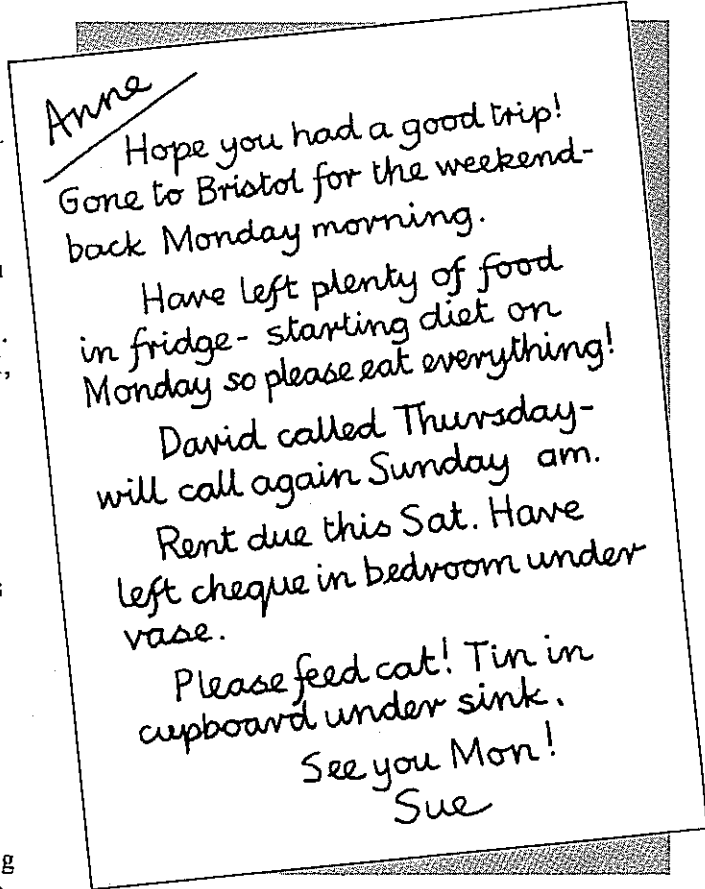 Anne
Hope you had a good trip!
Gone to Bristol for the weekend-
back Monday morning.
Have left plenty of food
in fridge- starting diet on
Monday so please eat everything!
David called Thursday-
will call again Sunday am.
Rent due this Sat. Have
left cheque in bedroom under
vase.
Please feed cat! Tin in
cupboard under sink.
See you Mon!
Sue
g